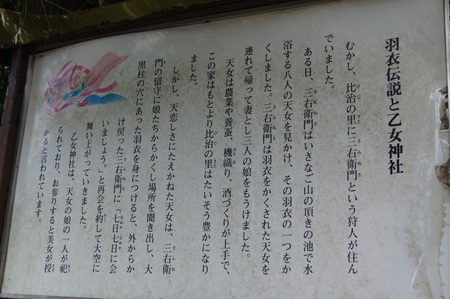 羽衣伝説と乙女神社
むかし、比治の里に三右衛門という狩人が住ん
でいました。
ある日、三右衛門はいさなご山の頂きの池で水
浴する八人の天女を見かけ、その羽衣の一つをか
くしました。三右衛門は羽衣をかくされた天女を
連れて帰って妻とし三人の娘をもうけました。
天女は農業や養蚕、機織り、酒づくりが上手で、
この家はもとより比治の里はたいそう豊かになり
ました。
しかし、天恋しさにたえかねた天女は、三右衛
門の留守に娘たちからかくし場所を聞き出し、大
黒柱の穴にあった羽衣を身につけると、外からか
け戻った三右衛門に「七日七日に会
いましょう。」と再会を約して大空に
舞い上がっていきました。
乙女神社は、天女の娘の一人が祀
られており、お参りすると美女が授
かると言われています。